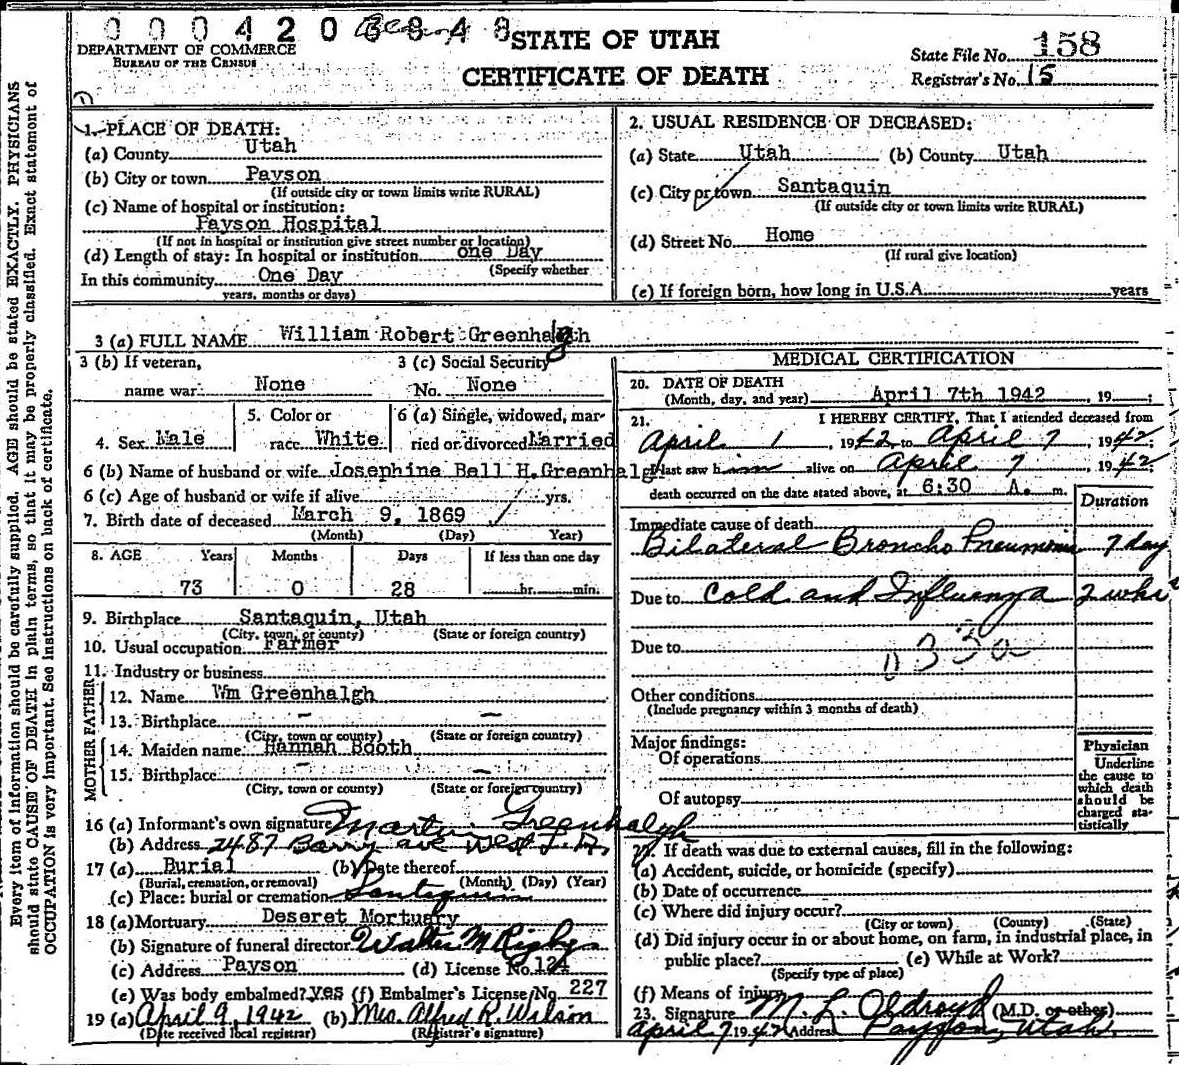 0 0 0 4 2 0 3 8 4 8
STATE OF UTAH
CERTIFICATE OF DEATH
DEPARTMENT OF COMMERCE
BUREAU OF THE CENSUS
State File No. 158
Registrar's No. 15
Every item of information should be carefully supplied. AGE should be stated EXACTLY. PHYSICIANS
should state CAUSE OF DEATH in plain terms, so that it may be properly classified. Exact statement of
OCCUPATION is very important. See instructions on back of certificate.
1. PLACE OF DEATH:
(a) County Utah
(b) City or town Payson
(If outside city or town limits write RURAL)
(c) Name of hospital or institution:
Payson Hospital
(If not in hospital or institution give street number or location)
(d) Length of stay: In hospital or institution one Day
(Specify whether
In this community One Day
years, months or days)
2. USUAL RESIDENCE OF DECEASED:
(a) State Utah (b) County Utah
(c) City or town Santaquin
(If outside city or town limits write RURAL)
(d) Street No. Home
(If rural give location)
(e) If foreign born, how long in U.S.A. years
3 (a) FULL NAME William Robert Greenhalgh
3 (b) If veteran,
name war None
3 (c) Social Security
No. None
4. Sex Male
5. Color or
race White
6 (a) Single, widowed, mar-
ried or divorced Married
6 (b) Name of husband or wife Josephine Bell H. Greenhalgh
6 (c) Age of husband or wife if alive yrs.
7. Birth date of deceased March 9, 1869
(Month) (Day) Year)
8. AGE Years Months Days If less than one day
73 0 28 hr. min.
9. Birthplace Santaquin, Utah
(City, town, or county) (State or foreign country)
10. Usual occupation Farmer
11. Industry or business
FATHER
12. Name Wm Greenhalgh
13. Birthplace — —
(City, town or county) (State or foreign country)
MOTHER
14. Maiden name Hannah Booth
15. Birthplace — —
(City, town or county) (State or foreign country)
16 (a) Informant's own signature Martin Greenhalgh
(b) Address 2487 Barry ave West L. A.
17 (a) Burial (b) Date thereof
(Burial, cremation, or removal) (Month) (Day) (Year)
(c) Place: burial or cremation Santaquin
18 (a) Mortuary Deseret Mortuary
(b) Signature of funeral director Walter M Rigby
(c) Address Payson (d) License No. 124
(e) Was body embalmed? yes (f) Embalmer's License No. 227
19 (a) April 9, 1942 (b) Mrs. Alfred R. Wilson
(Date received local registrar) (Registrar's signature)
MEDICAL CERTIFICATION
20. DATE OF DEATH
(Month, day, and year) April 7th 1942, 19 ;
21. I HEREBY CERTIFY, That I attended deceased from
April 1, 1942 to April 7 1942;
I last saw him alive on April 7 1942;
death occurred on the date stated above, at 6:30 A. m.
Duration
Immediate cause of death
Bilateral Broncho Pneumonia 7 day
Due to Cold and Influenza 2 wks
Due to
Other conditions
(Include pregnancy within 3 months of death)
Major findings:
Of operations
Of autopsy
Physician
Underline
the cause to
which death
should be
charged sta-
tistically
22. If death was due to external causes, fill in the following:
(a) Accident, suicide, or homicide (specify)
(b) Date of occurrence
(c) Where did injury occur?
(City or town) (County) (State)
(d) Did injury occur in or about home, on farm, in industrial place, in
public place? (e) While at Work?
(Specify type of place)
(f) Means of injury
23. Signature M. L. Oldroyd (M.D. or other)
April 7 1942 Address Payson, Utah.